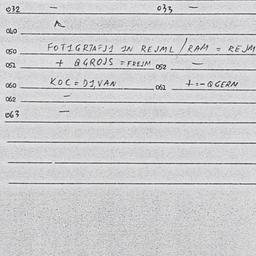 032 — 033 —
040
050 FOT1GR7AFJ1 IN REJML / RAM = REJM
051 + QGROJS = FREJM 052 —
060 KOC = D1,VAN 061 + = - QGERN
062 —
063 —